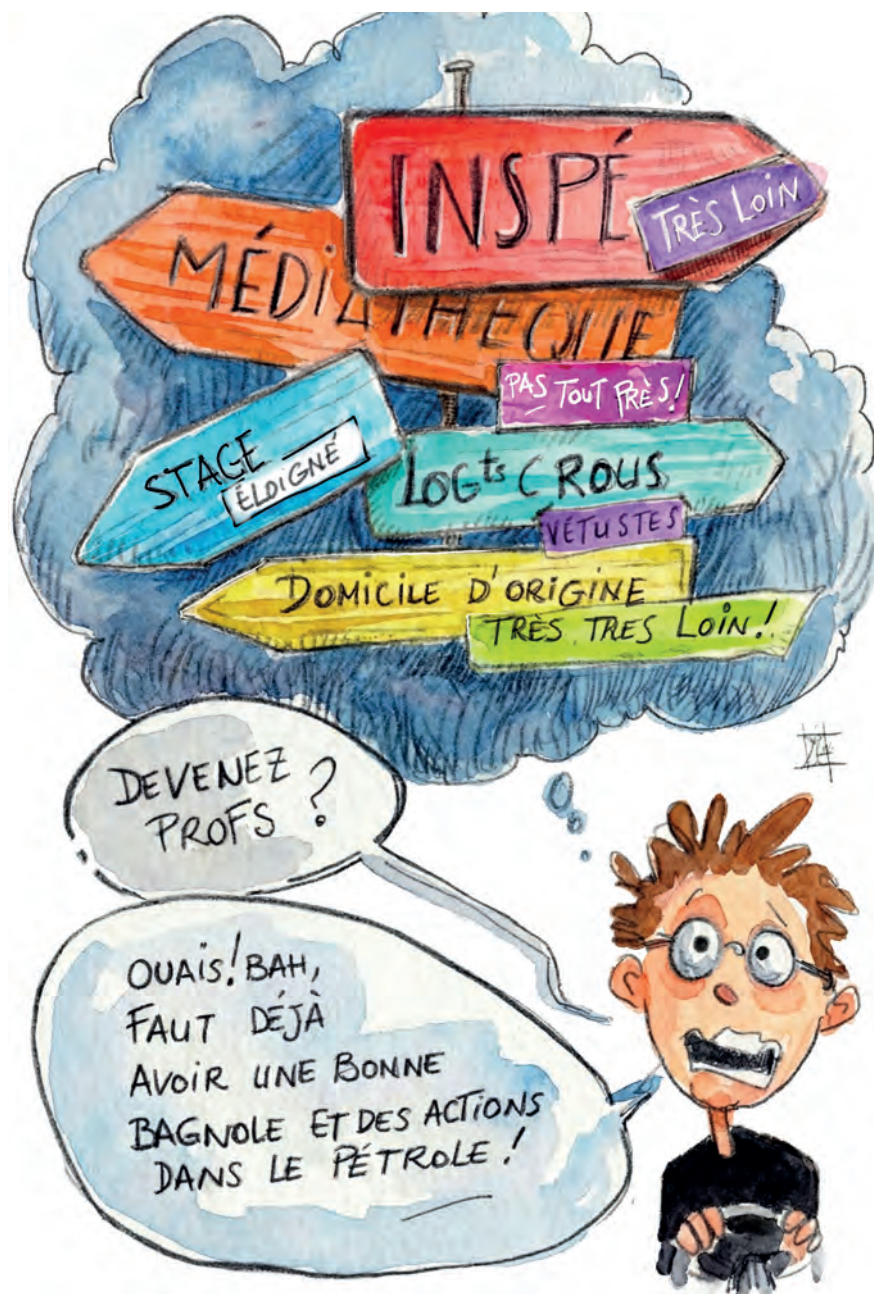 INSPÉ
TRÈS LOIN
MÉDIATHEQUE
PAS TOUT PRÈS!
STAGE
ÉLOIGNÉ
LOGts CROUS
VÉTUSTES
DOMICILE D'ORIGINE
TRÈS TRES LOIN!
DEVENEZ
PROFS ?
OUAIS! BAH,
FAUT DÉJÀ
AVOIR UNE BONNE
BAGNOLE ET DES ACTIONS
DANS LE PÉTROLE!